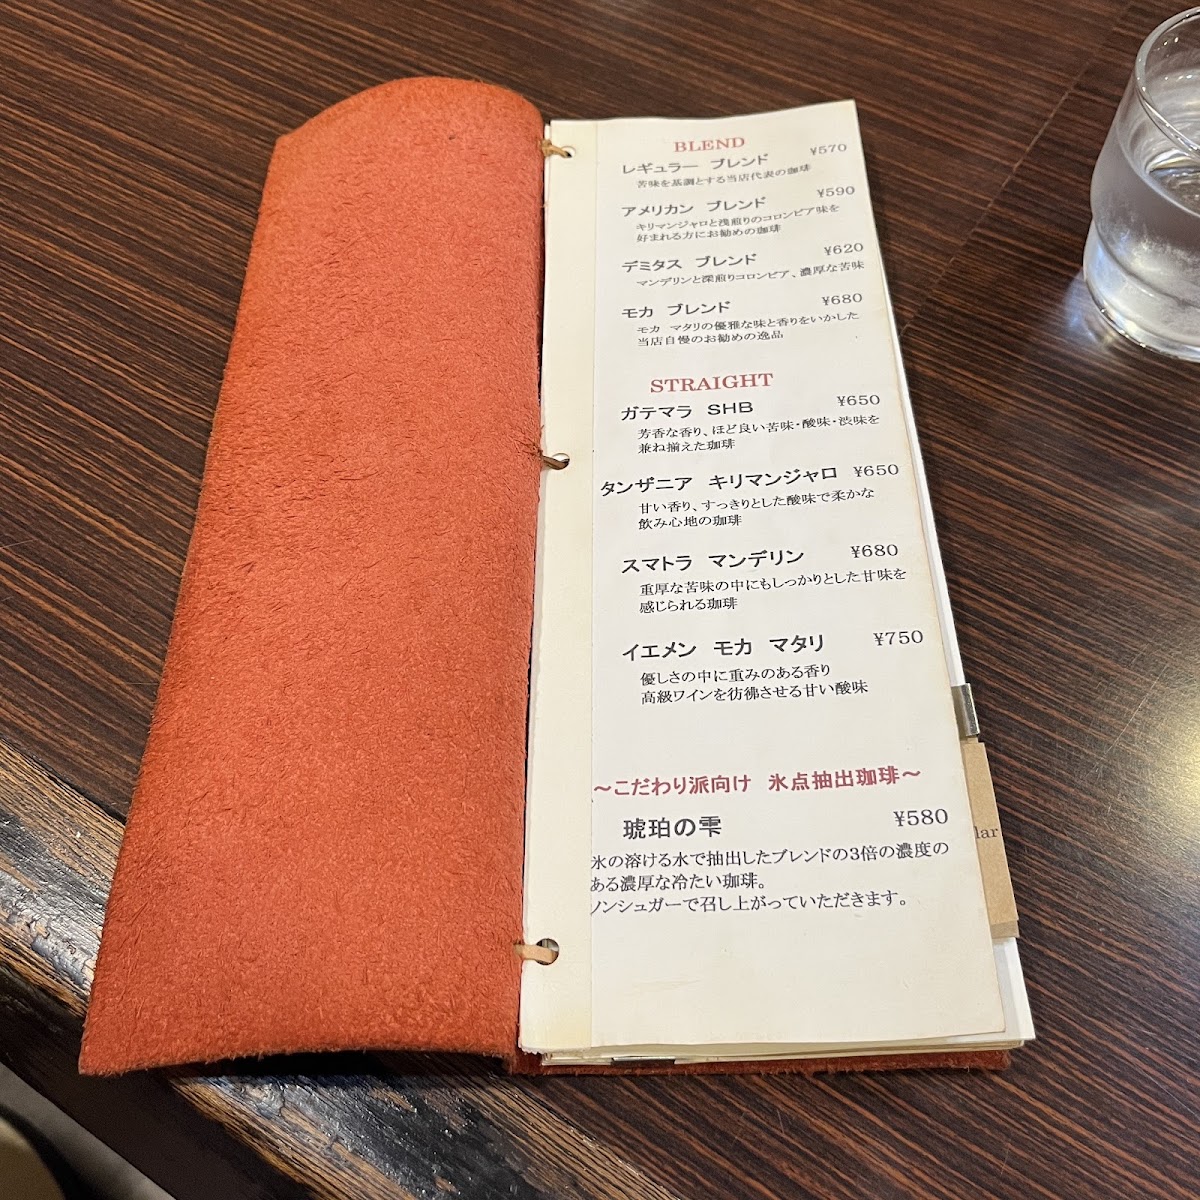 BLEND
レギュラー ブレンド ¥570
苦味を基調とする当店代表の珈琲
アメリカン ブレンド ¥590
キリマンジャロと浅煎りのコロンビア味を
好まれる方にお勧めの珈琲
デミタス ブレンド ¥620
マンデリンと深煎りコロンビア、濃厚な苦味
モカ ブレンド ¥680
モカ マタリの優雅な味と香りをいかした
当店自慢のお勧めの逸品
STRAIGHT
ガテマラ SHB ¥650
芳香な香り、ほど良い苦味・酸味・渋味を
兼ね揃えた珈琲
タンザニア キリマンジャロ ¥650
甘い香り、すっきりとした酸味で柔かな
飲み心地の珈琲
スマトラ マンデリン ¥680
重厚な苦味の中にもしっかりとした甘味を
感じられる珈琲
イエメン モカ マタリ ¥750
優しさの中に重みのある香り
高級ワインを彷彿させる甘い酸味
～こだわり派向け 氷点抽出珈琲～
琥珀の雫 ¥580
氷の溶ける水で抽出したブレンドの3倍の濃度の
ある濃厚な冷たい珈琲。
ノンシュガーで召し上がっていただきます。
lar